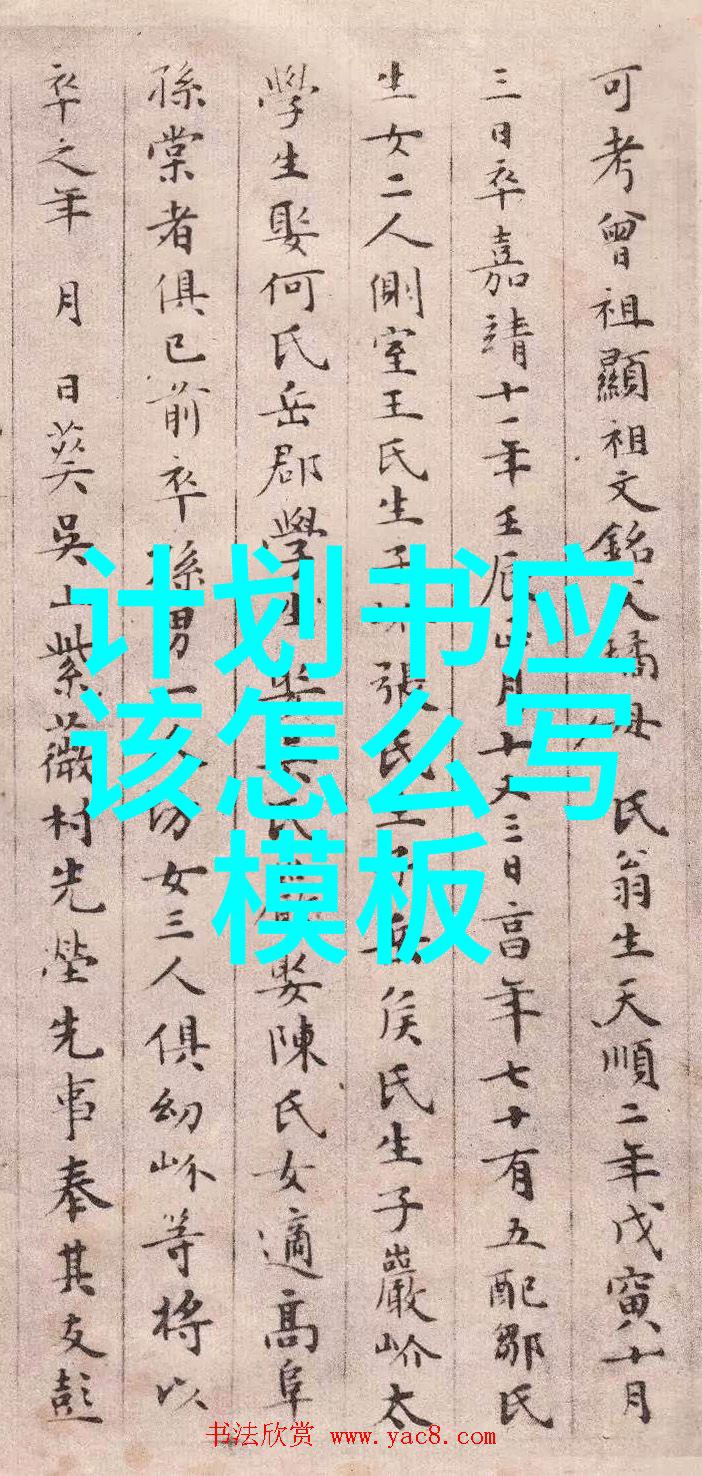 可考曾祖顯祖文銘父璚母 氏翁生天順二年戊寅十月
三日卒嘉靖十一年壬辰正月十又三日高年七十有五配鄒氏
生女二人側室王氏生子 張氏生子岳侯氏生子巖岕太
學生娶何氏岳郡學生娶 氏巖娶陳氏女適高阜
孫棠者俱已前卒孫男一 幼女三人俱幼岕等將以
卒之年 月 日葬吳山紫薇村先塋先事奉其友彭
计划书应
该怎么写
模板
书法欣赏 www.yac8.com